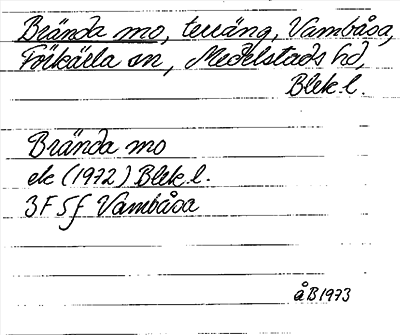 Brända mo, terräng, Vambåsa,
Förkärla sn, Medelstads hd,
Blek l.
Brända mo
ek (1972) Blek l.
3F 5f Vambåsa
åB1973